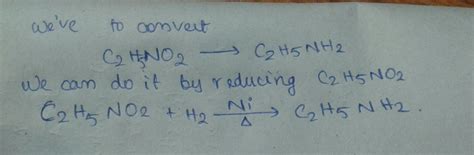 we've to convert
C2H5NO2 → C2H5NH2
We can do it by reducing C2H5NO2
C2H5NO2 + H2 Ni/Δ → C2H5NH2.